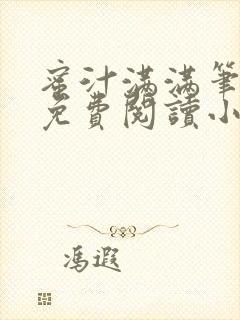 蜜汁满满筆
免費閱讀小
馮遐